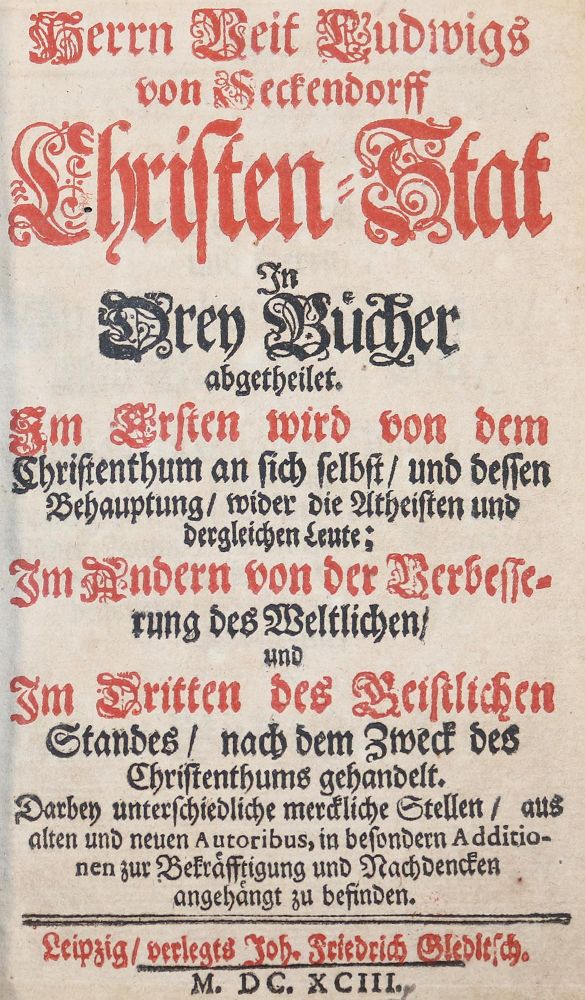 Herrn Veit Ludwigs
von Seckendorff
Christen-Stat
In
Drey Bücher
abgetheilet.
Im Ersten wird von dem
Christenthum an sich selbst/ und dessen
Behauptung/ wider die Atheisten und
dergleichen Leute;
Im Andern von der Verbesse-
rung des Weltlichen/
und
Im Dritten des Geistlichen
Standes/ nach dem Zweck des
Christenthums gehandelt.
Darbey unterschiedliche merckliche Stellen/ aus
alten und neuen Autoribus, in besondern Additio-
nen zur Bekräfftigung und Nachdencken
angehängt zu befinden.
Leipzig/ verlegts Joh. Friedrich Gleditsch.
M. DC. XCIII.